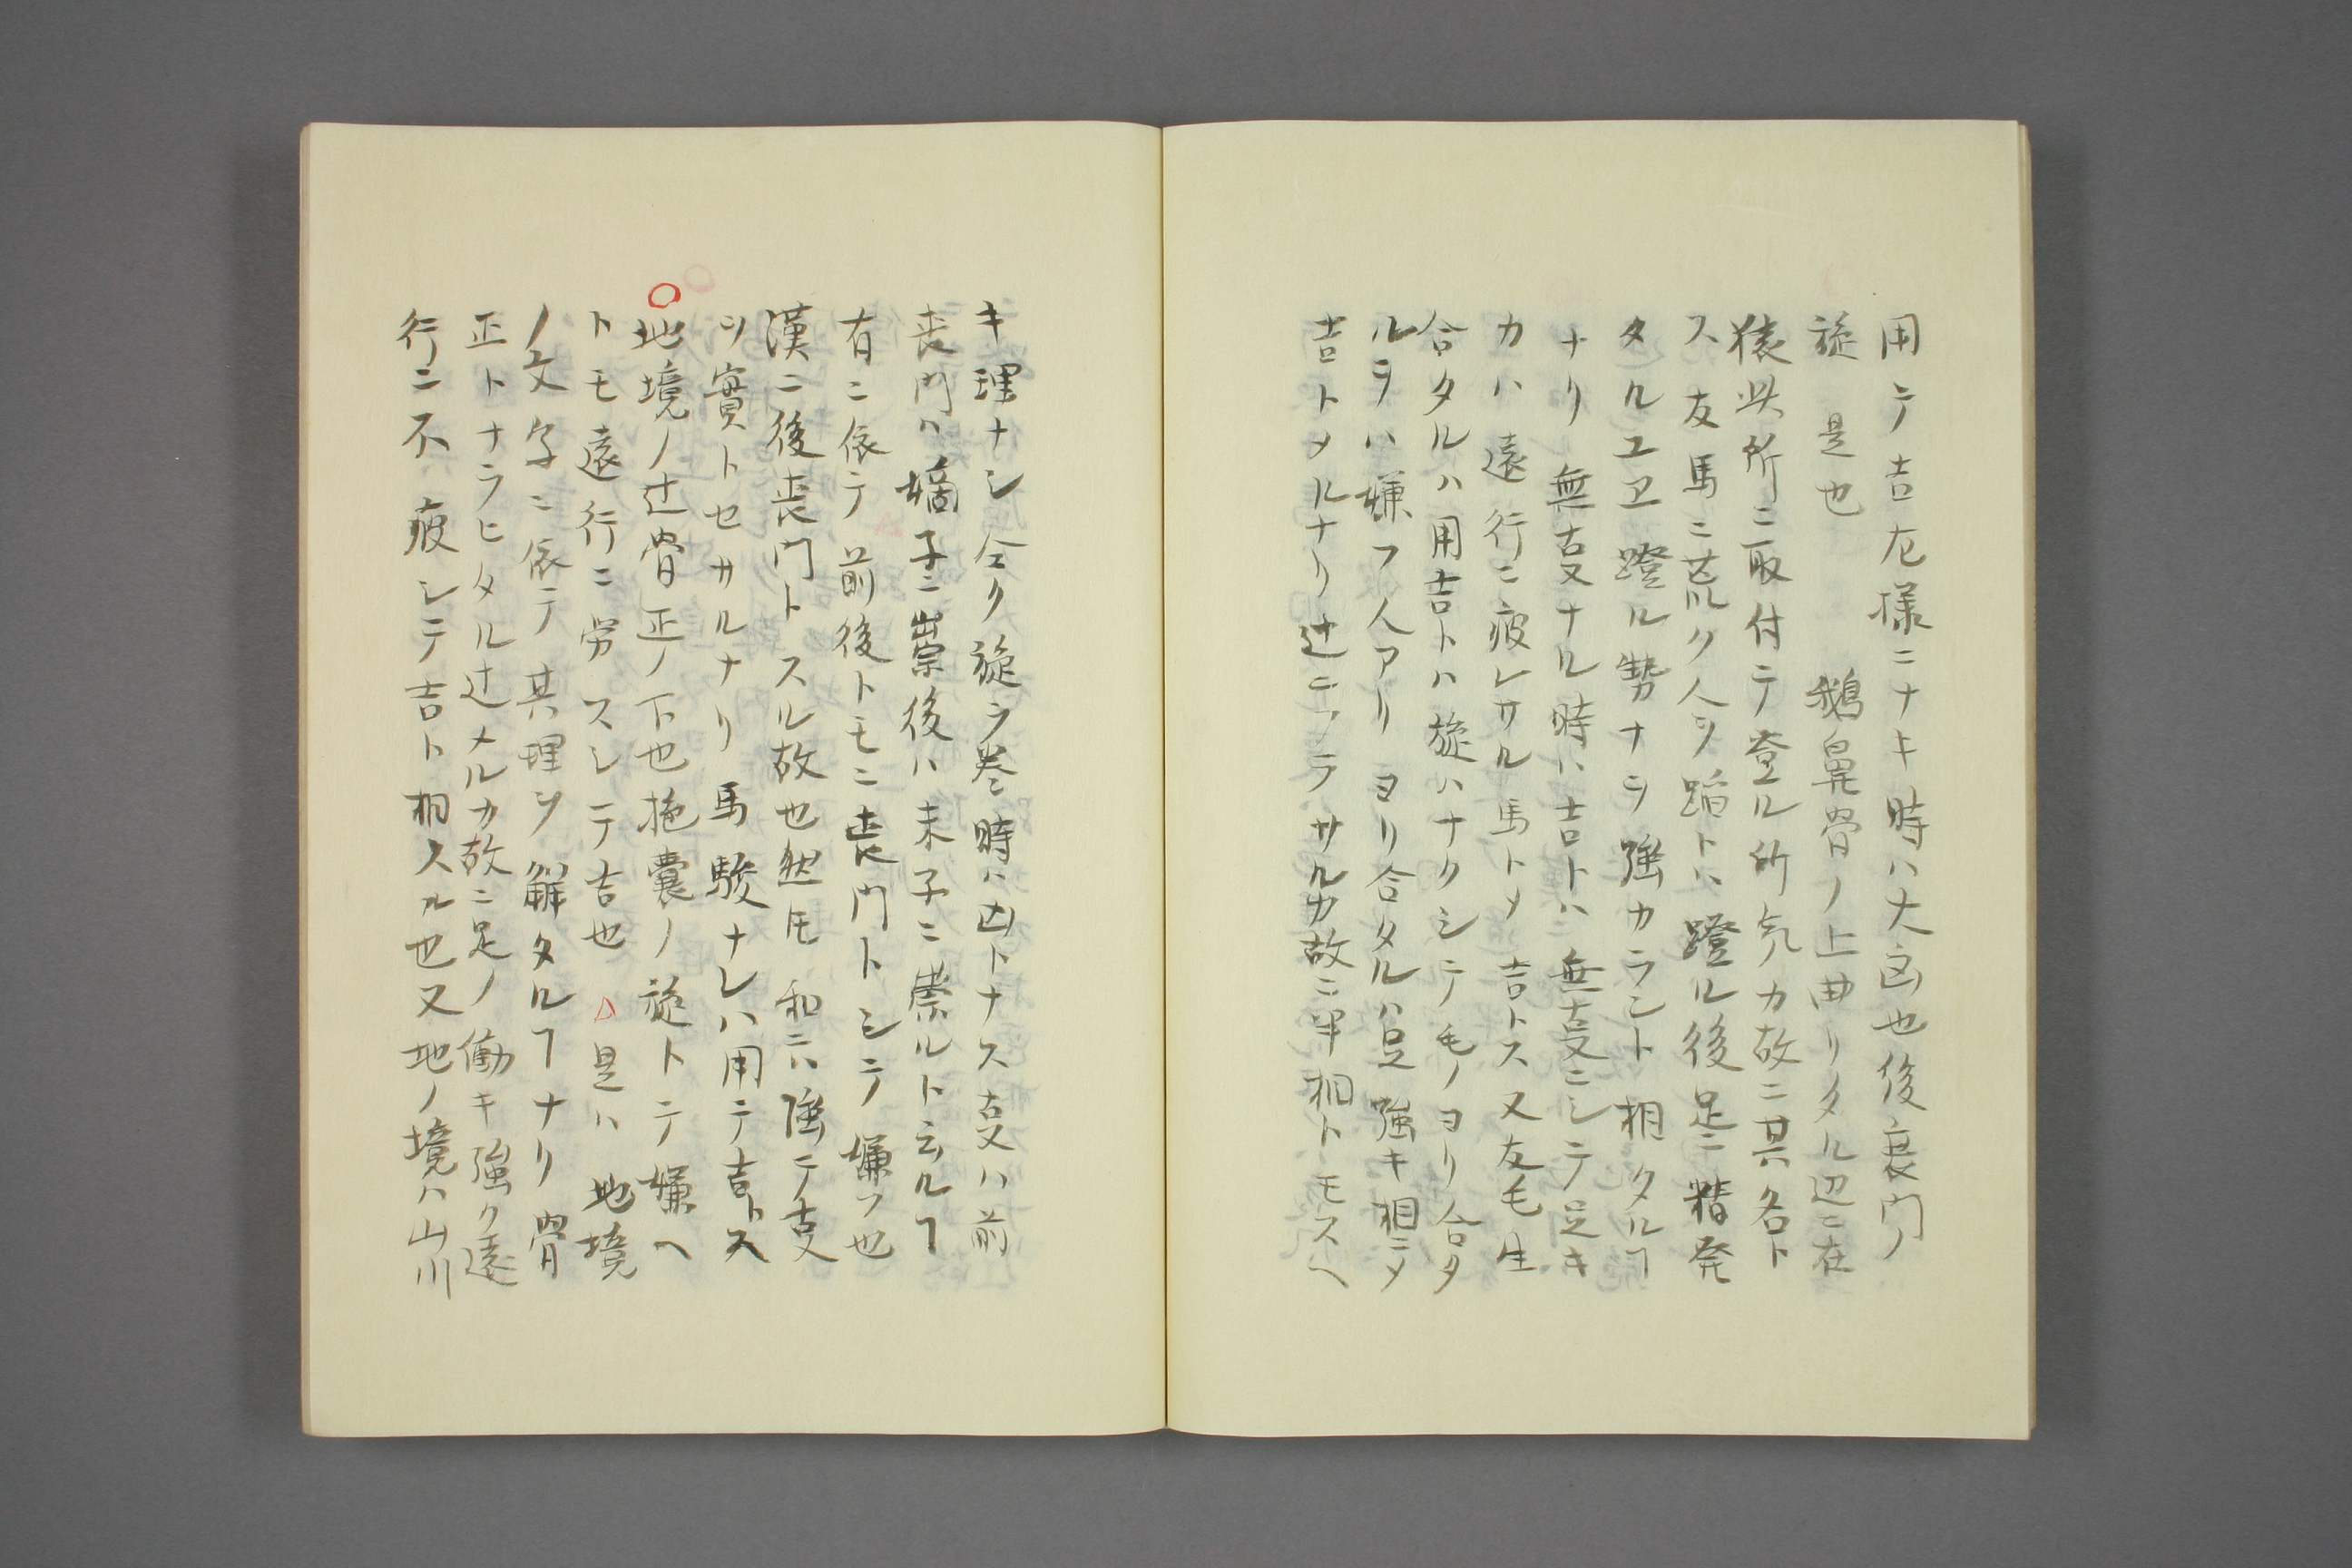 用テ吉尨様ニナキ時ハ大凶也後喪門ノ
旋是也 鵝鼻骨ノ上曲リタル辺ニ在
猿此所ニ取付テ登ル所気カ故ニ其名ト
ス友馬ニ荒ルク人ヲ蹈トハ蹬ル後足ニ精発
タルユヱ蹬ル勢ナラ強カラント相タルヿ
ナリ無叓ナル時ハ吉トハ無叓ニシテ足キ
カハ遠行ニ疲レサル馬トメ吉トス又友毛生
合タルハ用吉トハ旋ハナクシテ毛ノヨリ合タ
ルヲハ嫌フ人アリヨリ合タルハ足強キ相ニメ
吉トメルナリ辻ニアラサルカ故ニ平相トモスヘ
キ理ナシ全ク旋ラ巻時ハ凶トナス叓ハ前
喪門ハ嫡子ニ祟後ハ末子ニ祟ルト云ルヿ
有ニ依テ前後トモニ喪門トシテ嫌フ也
漢ニ後喪門トスル故也然𪜈和ニハ強テ叓
ヲ實トセサルナリ馬駿ナレハ用テ吉トス
○地境ノ辻骨正ノ下也拖嚢ノ旋トテ嫌ヘ
トモ遠行ニ労スシテ吉也△是ハ地境
ノ文字ニ依テ其理ヲ解タルヿナリ骨
正トナラヒタル辻メルカ故ニ足ノ働キ強ク遠
行ニ不疲シテ吉ト相スル也又地ノ境ハ山川